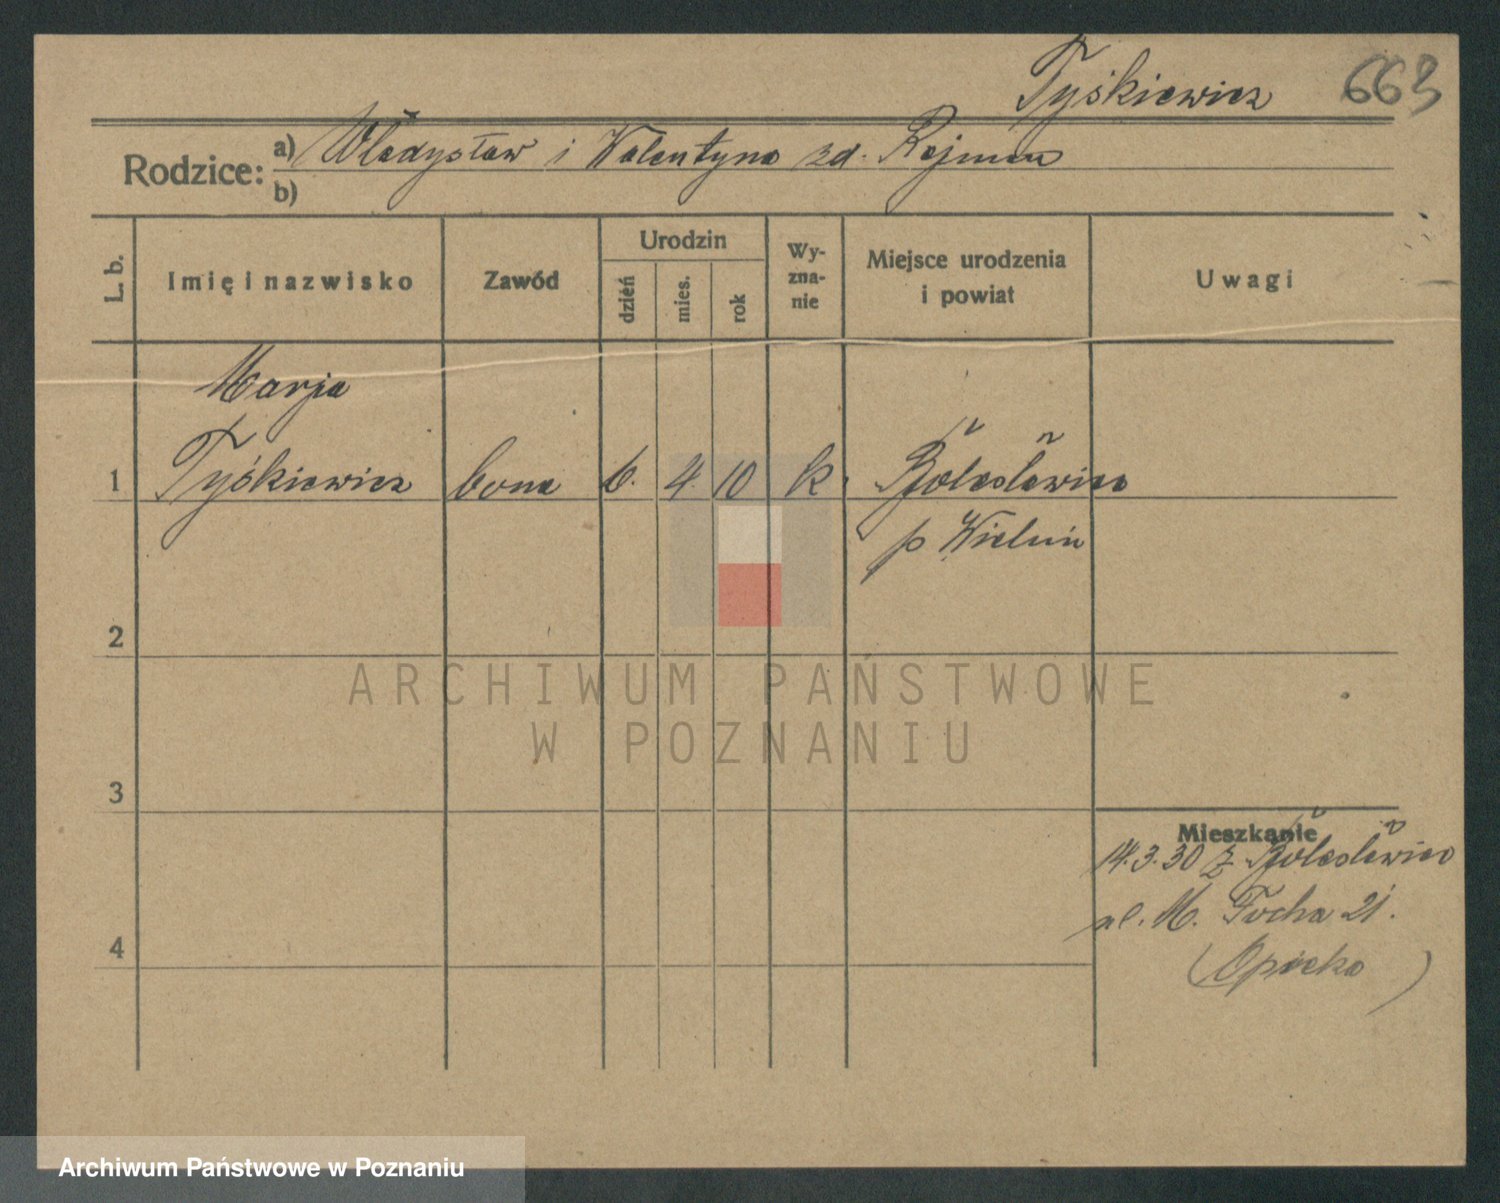 Tyśkiewicz 663
Rodzice: a) Władysław i Walentyna zd. Rejman
b)
L. b. Imię i nazwisko Zawód Urodzin dzień mies. rok Wyznanie Miejsce urodzenia i powiat Uwagi
Marja
1 Tyśkiewicz bona 6. 4. 10 k. Bolesławiec
p Wieluń
2
ARCHIWUM PAŃSTWOWE
W POZNANIU
3
Mieszkanie
14.3.30 z Bolesławiec
ul. M. Focha 21.
4
(Opieka)
Archiwum Państwowe w Poznaniu